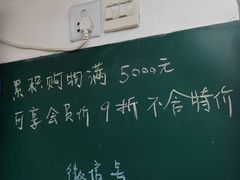 累积购物满 5000元
可享会员价 9折 不含特价
微信号